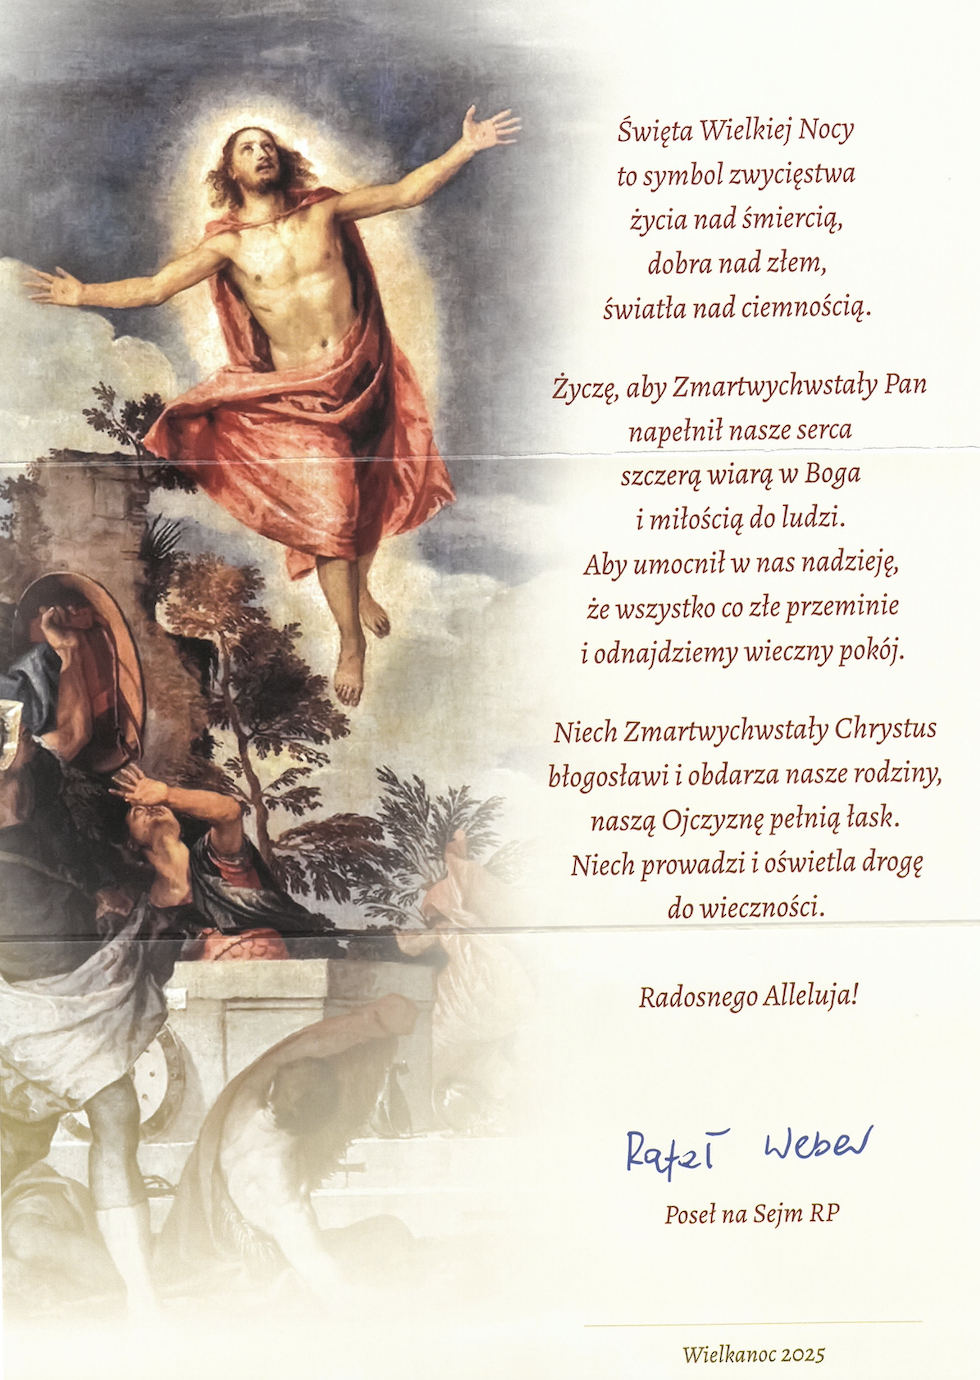 Święta Wielkiej Nocy
to symbol zwycięstwa
życia nad śmiercią,
dobra nad złem,
światła nad ciemnością.
Życzę, aby Zmartwychwstały Pan
napełnił nasze serca
szczerą wiarą w Boga
i miłością do ludzi.
Aby umocnił w nas nadzieję,
że wszystko co złe przeminie
i odnajdziemy wieczny pokój.
Niech Zmartwychwstały Chrystus
błogosławi i obdarza nasze rodziny,
naszą Ojczyznę pełnią łask.
Niech prowadzi i oświetla drogę
do wieczności.
Radosnego Alleluja!
Rafał Weber
Poseł na Sejm RP
Wielkanoc 2025